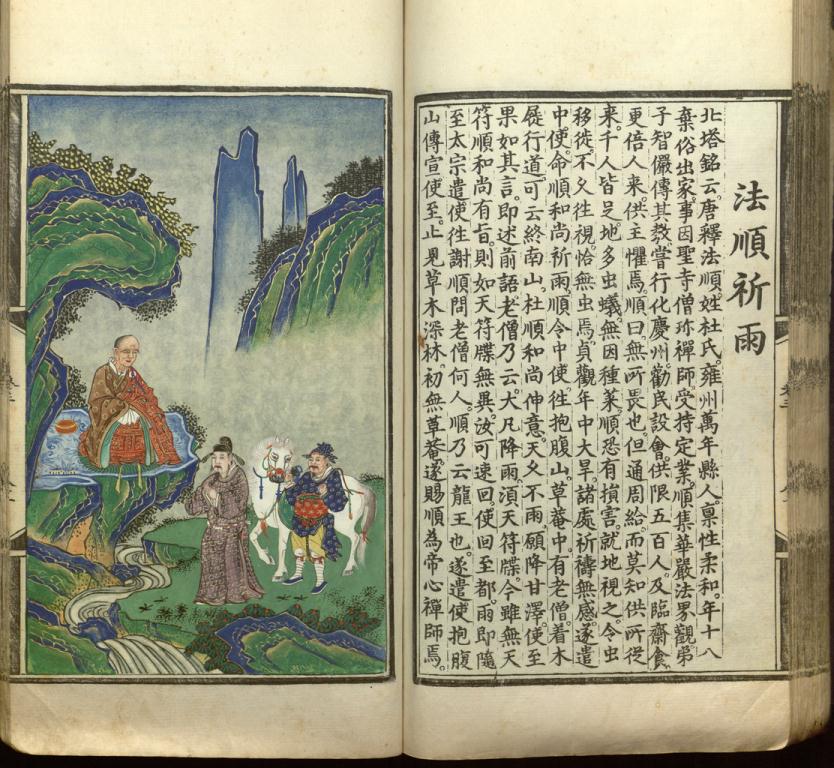 法順祈雨
北塔銘云。唐釋法順。姓杜氏。雍州萬年縣人。稟性柔和。年十八
棄俗出家。事因聖寺僧珍禪師。受持定業。順集華嚴法界觀。弟
子智儼傳其教。嘗行化慶州。勸民設會。供限五百人。及臨齋食
更倍人來。供主懼焉。順曰無所畏也。但通周給。而莫知供所從
來。千人皆足。地多虫蟻。無因種菜。順恐有損害。就地視之。令虫
移徙。不久往視。恰無虫焉。貞觀年中大旱。諸處祈禱無感。遂遣
中使。命順和尚祈雨。順令中使往抱腹山。草菴中。有老僧着木
屐行道。可云終南山。杜順和尚伸意。天久不雨。願降甘澤。使至
果如其言。即述前語。老僧乃云。大凡降雨。須天符牒。今雖無天
符。順和尚有旨。則如天符牒無異。汝可速回。使回至都。雨即隨
至。太宗遣使往謝。順問老僧何人。順乃云龍王也。遂遣使抱腹
山傳宣。使至。止見草木深林。初無草菴。遂賜順為帝心禪師焉。